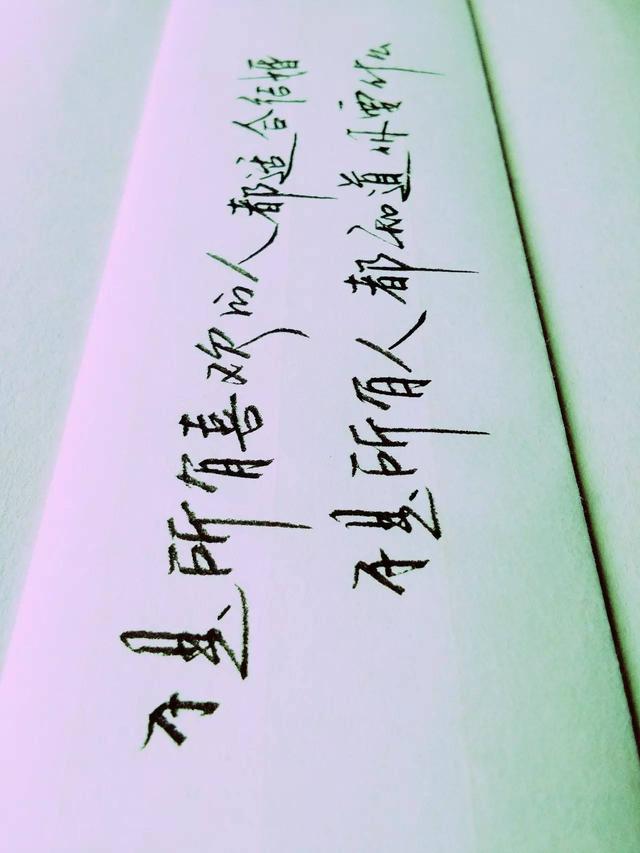 不是所有喜欢的人都适合结婚
不是所有人都知道